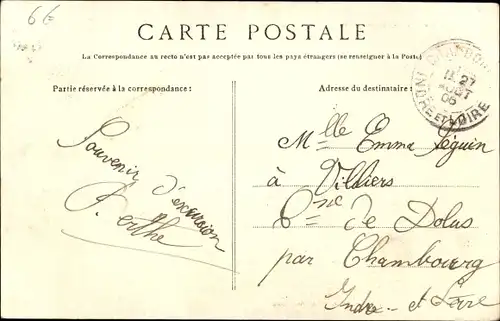 6€
CARTE POSTALE
La Correspondance au recto n'est pas acceptée par tous les pays étrangers (se renseigner à la Poste)
Partie réservée à la correspondance :
Adresse du destinataire :
CHAMBOURG
27
AOUT
06
INDRE ET LOIRE
Souvenir d'excursion
Melle Emma Séguin
à Villiers
Cne de Dolus
par Chambourg
Indre-et-Loire